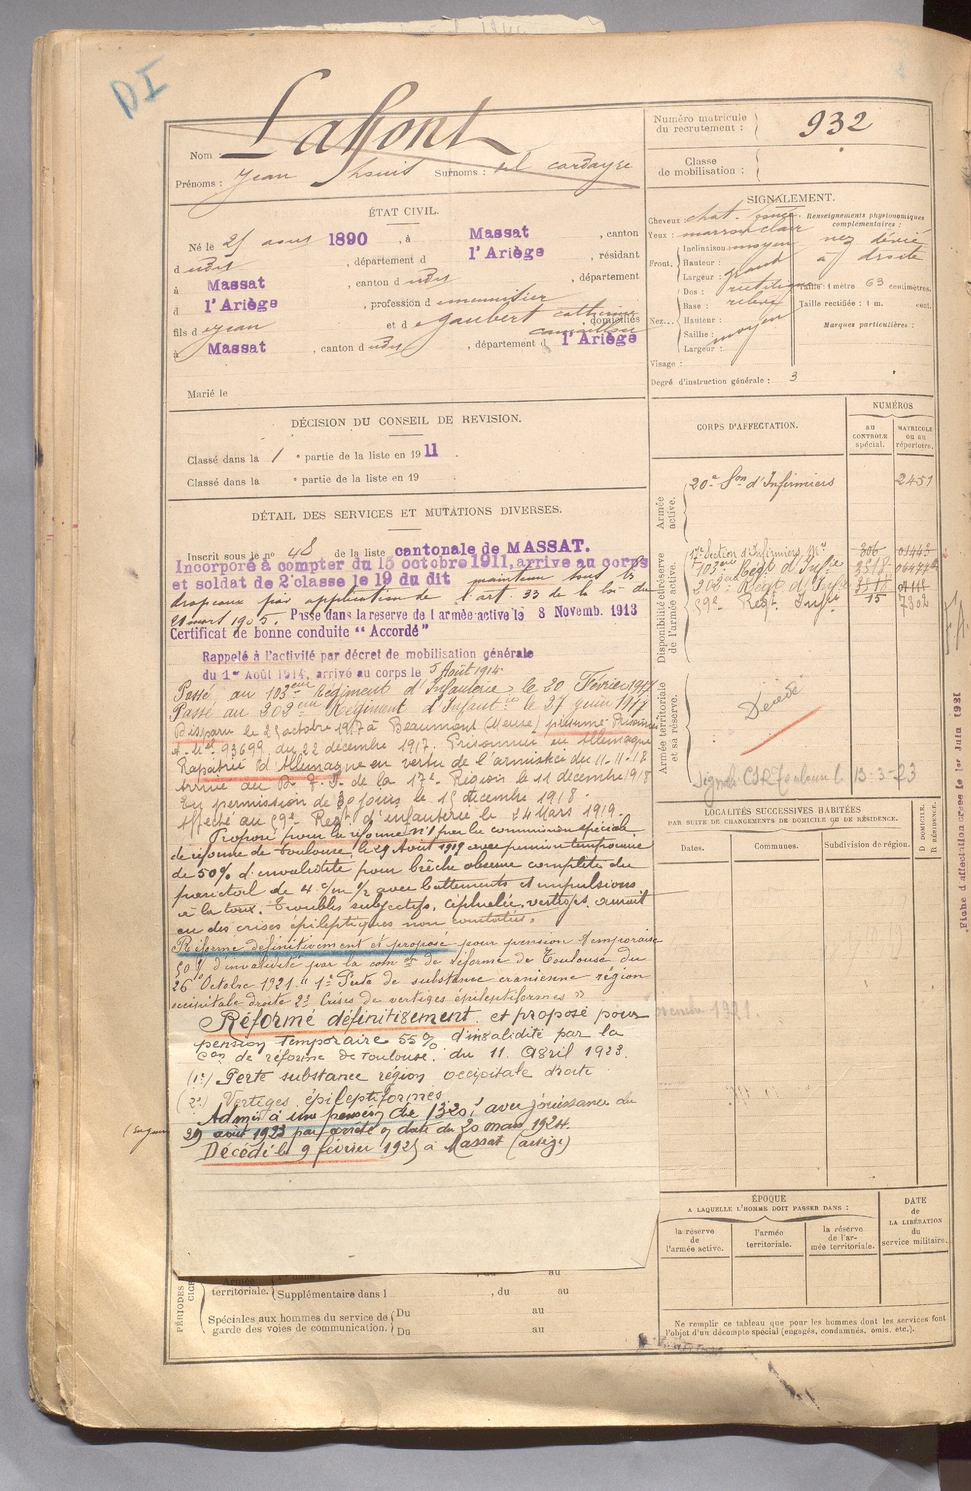 DI
Nom Laffont
Prénoms : Jean Louis Surnoms : del cardayre
Numéro matricule du recrutement : 932
Classe de mobilisation :
ÉTAT CIVIL.
Né le 25 aous 1890, à Massat, canton
d udis, département d l'Ariège, résidant
à Massat, canton d udis, département
d l'Ariège, profession d emenuisier
fils d e Jean et d e Gaubert Catherine domiciliés
à Massat, canton d udis, département d l'Ariège
Marié le
SIGNALEMENT.
Cheveux : chat. foncé
Yeux : marron clair
Front. Inclinaison : moyen
Hauteur :
Largeur : grand
Nez... Dos : rectiligne
Base : relevé
Hauteur :
Saillie : moyen
Largeur :
Visage :
Renseignements physionomiques complémentaires :
nez dévié à droite
Taille : 1 mètre 63 centimètres.
Taille rectifiée : 1 m. cent.
Marques particulières :
Degré d'instruction générale : 3
DÉCISION DU CONSEIL DE REVISION.
Classé dans la 1 e partie de la liste en 1911
Classé dans la e partie de la liste en 19
DÉTAIL DES SERVICES ET MUTATIONS DIVERSES.
Inscrit sous le no 48 de la liste cantonale de MASSAT.
Incorporé à compter du 13 octobre 1911, arrivé au corps
et soldat de 2e classe le 19 du dit maintenu sous les
drapeaux par application de l'art. 33 de la loi du
21 mars 1905. Passé dans la réserve de l'armée active le 8 Novemb. 1913
Certificat de bonne conduite "Accordé"
Rappelé à l'activité par décret de mobilisation générale
du 1er Août 1914, arrivé au corps le 5 Août 1914
Passé au 103eme Régiment d'Infanterie le 20 Février 1917
Passé au 202eme Régiment d'Infanterie le 27 juin 1917
Disparu le 25 octobre 1917 à Beaumont (Meuse) présumé Prisonnier
93699 du 22 décembre 1917. Prisonnier en Allemagne
Rapatrié d'Allemagne en vertu de l'armistice du 11-11-18
Arrivé au D. T. I. de la 17e Région le 11 décembre 1918
En permission de 30 jours le 15 décembre 1918.
Affecté au 59e Regt d'infanterie le 24 Mars 1919.
Proposé pour la réforme n°1 par la commission spéciale
de réforme de Toulouse, le 29 Août 1919 avec pension temporaire
de 50% d'invalidité pour brèche osseuse complète du
pariétal de 4 c/m 1/2 avec battements et impulsions
à la toux. Troubles subjectifs, céphalée, vertiges, aurait
eu des crises épileptiques non constatées.
Réformé définitivement et proposé pour pension temporaire
50% d'invalidité par la com on de Réforme de Toulouse du
26 Octobre 1921. " 1° Perte de substance cranienne région
occipitale droite 2° Crises de vertiges épileptiformes "
Réformé définitivement et proposé pour
pension temporaire 55% d'invalidité par la
Con de réforme de Toulouse. du 11. Avril 1923.
(1°) Perte substance région occipitale droite
(2°) Vertiges épileptiformes
Admis à une pension de 1320f avec jouissance du
29 août 1923 par arrêté en date du 20 mars 1924.
Décédé le 9 février 1925 à Massat (ariège)
CORPS D'AFFECTATION.
NUMÉROS
AU CONTRÔLE spécial.
MATRICULE OU AU répertoire.
Armée active.
20e Son d'Infirmiers 2451
Disponibilité et réserve de l'armée active.
17e Section d'Infirmiers Mre 306 01443
103eme Régt d'Infie 2318
202eme Régt d'Infie
59e Regt Infie 15 7302
Armée territoriale et sa réserve.
Décédé
Signalé C.S.R. Toulouse le 13-3-23
LOCALITÉS SUCCESSIVES HABITÉES
PAR SUITE DE CHANGEMENTS DE DOMICILE OU DE RÉSIDENCE.
Dates. Communes. Subdivision de région. D. DOMICILE. R. RÉSIDENCE.
1921.
ÉPOQUE
A LAQUELLE L'HOMME DOIT PASSER DANS :
la réserve de l'armée active.
l'armée territoriale.
la réserve de l'armée territoriale.
DATE de LA LIBÉRATION du service militaire.
Ne remplir ce tableau que pour les hommes dont les services font
l'objet d'un décompte spécial (engagés, condamnés, omis, etc.).
PÉRIODES
Armée territoriale.
Supplémentaire dans l , du au
Spéciales aux hommes du service de garde des voies de communication.
Du au
Du au
Fiche d'affectation créée le 1er Juin 1921